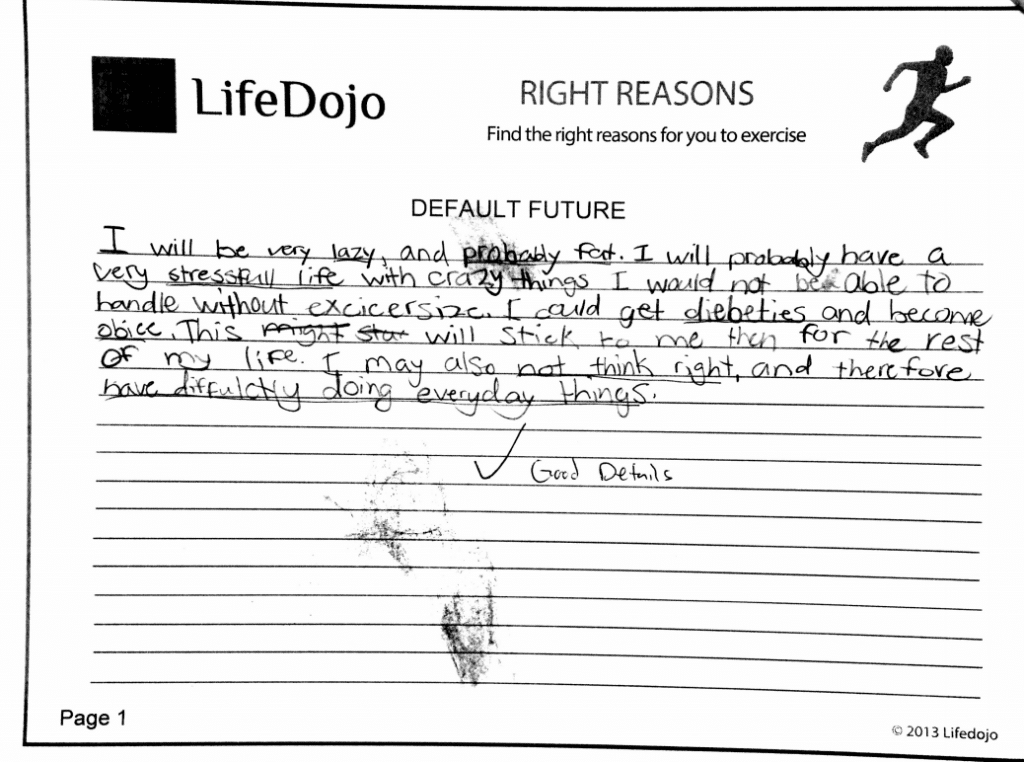 LifeDojo
RIGHT REASONS
Find the right reasons for you to exercise
DEFAULT FUTURE
I will be very lazy, and probably fat. I will probably have a
very stressfull life with crazy things I would not be able to
handle without excicersize. I could get diebeties and become
obice. This might star will stick to me then for the rest
of my life. I may also not think right, and therefore
have diffulctly doing everyday things.
Good Details
Page 1
© 2013 Lifedojo